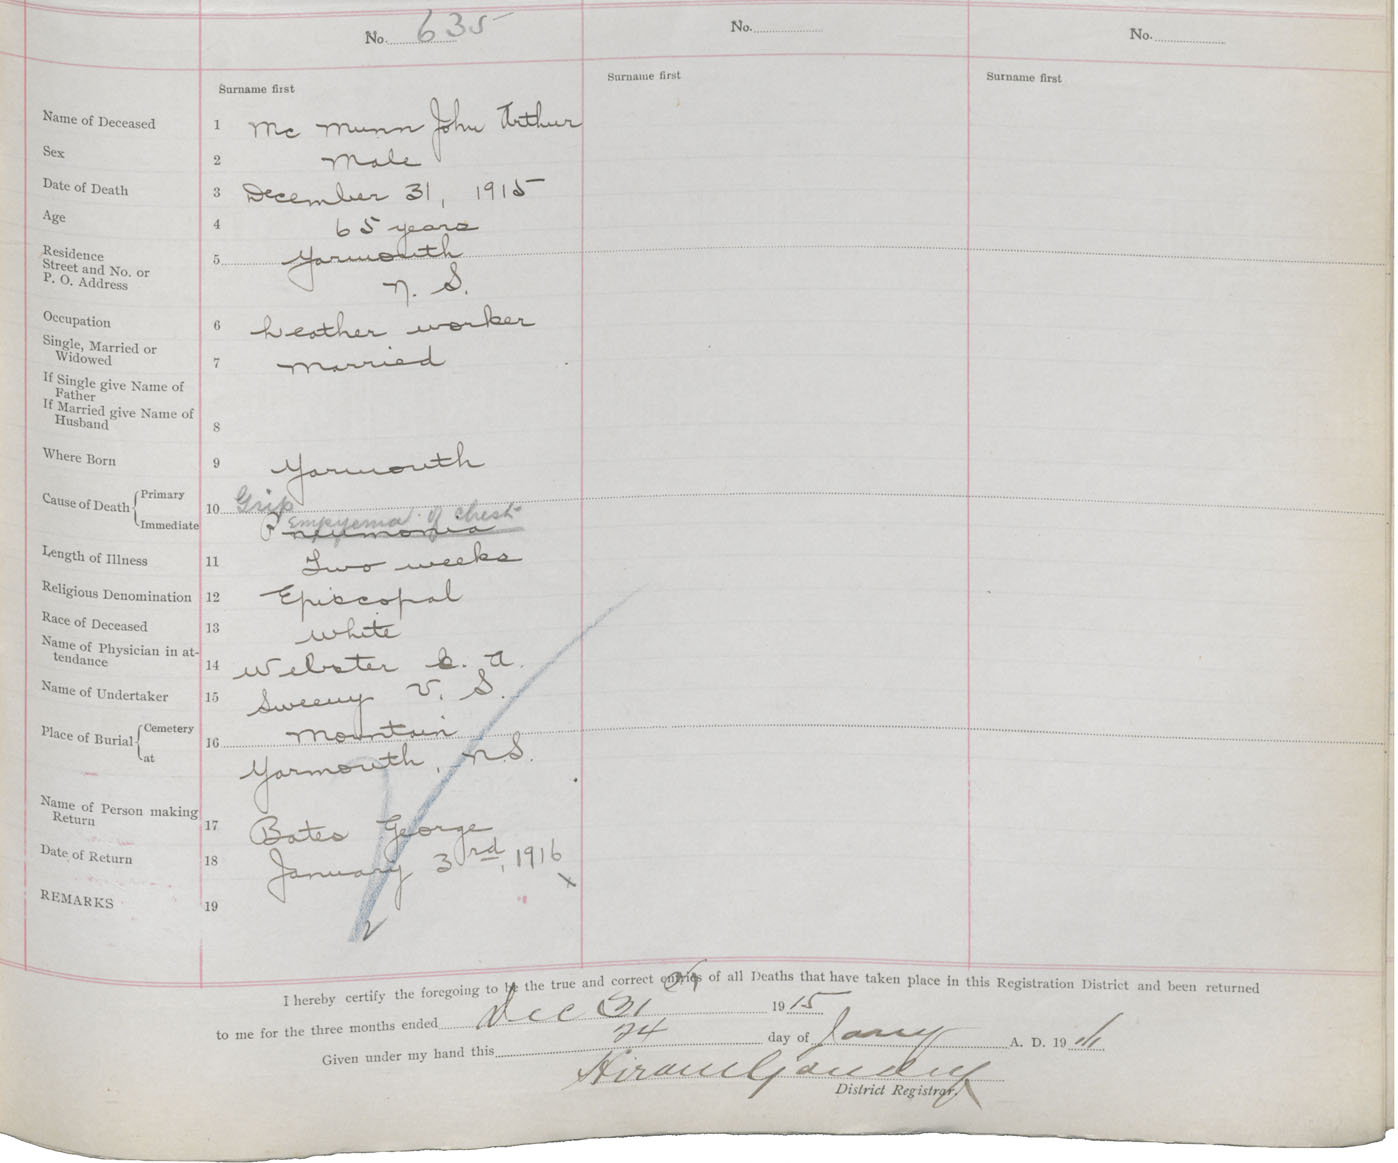 No. 635
No.
No.
Surname first
Surname first
Surname first
Name of Deceased 1 Mc Munn John Arthur
Sex 2 Male
Date of Death 3 December 31, 1915
Age 4 65 years
Residence
Street and No. or
P. O. Address
5 Yarmouth
N. S.
Occupation 6 Leather worker
Single, Married or
Widowed
7 Married
If Single give Name of
Father
If Married give Name of
Husband
8
Where Born 9 Yarmouth
Cause of Death Primary
Immediate
10 Grip
Empyema of Chest
Pneumonia
Length of Illness 11 Two weeks
Religious Denomination 12 Episcopal
Race of Deceased 13 White
Name of Physician in at-
tendance
14 Webster C. A.
Name of Undertaker 15 Sweeny V. S.
Place of Burial Cemetery
at
16 Mountain
Yarmouth, N.S.
Name of Person making
Return
17 Bates George
Date of Return 18 January 3rd, 1916
x
REMARKS 19
I hereby certify the foregoing to be the true and correct entries of all Deaths that have taken place in this Registration District and been returned
to me for the three months ended Dec 31 1915
Given under my hand this 24 day of A. D. 19
Hiram Goudey
District Registrar.